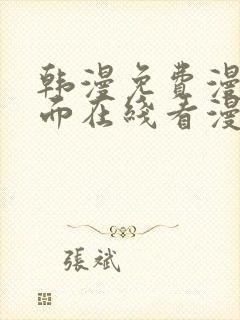 韩漫免费漫
而在线看漫
張斌